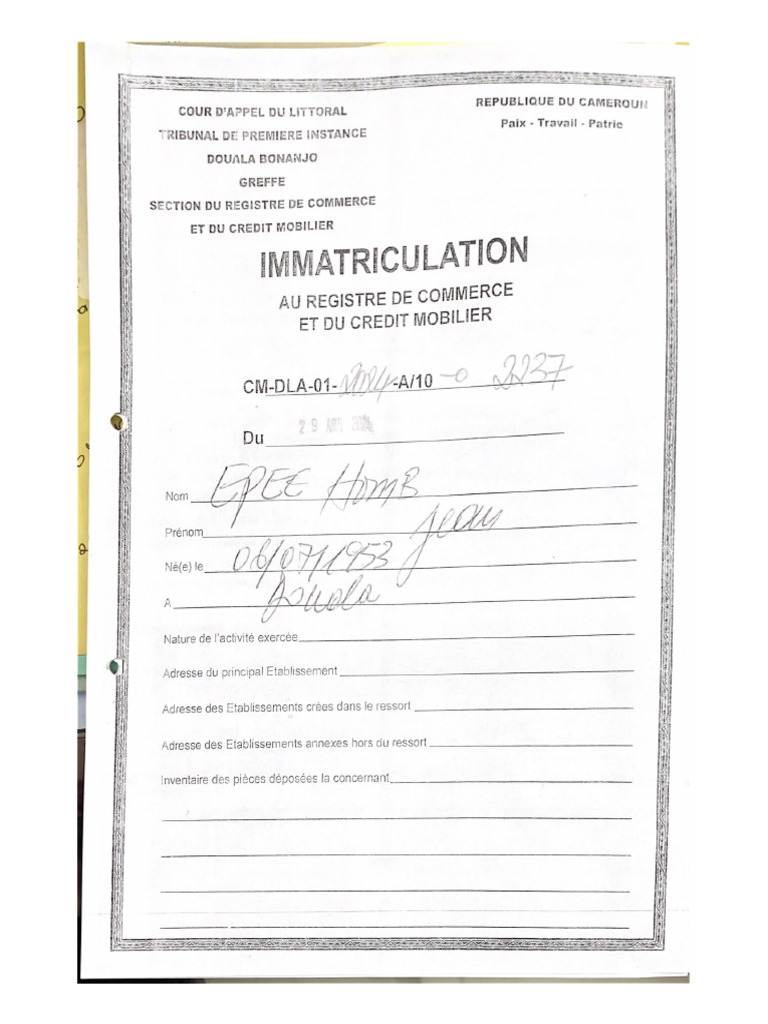 COUR D'APPEL DU LITTORAL
TRIBUNAL DE PREMIERE INSTANCE
DOUALA BONANJO
GREFFE
SECTION DU REGISTRE DE COMMERCE
ET DU CREDIT MOBILIER
REPUBLIQUE DU CAMEROUN
Paix - Travail - Patrie
IMMATRICULATION
AU REGISTRE DE COMMERCE
ET DU CREDIT MOBILIER
CM-DLA-01-2024-A/10 -0 2237
Du 29 AVR 2024
Nom EPEE HomB
Prénom Jean
Né(e) le 06/07/1953
A Douala
Nature de l'activité exercée
Adresse du principal Etablissement
Adresse des Etablissements crées dans le ressort
Adresse des Etablissements annexes hors du ressort
Inventaire des pièces déposées la concernant